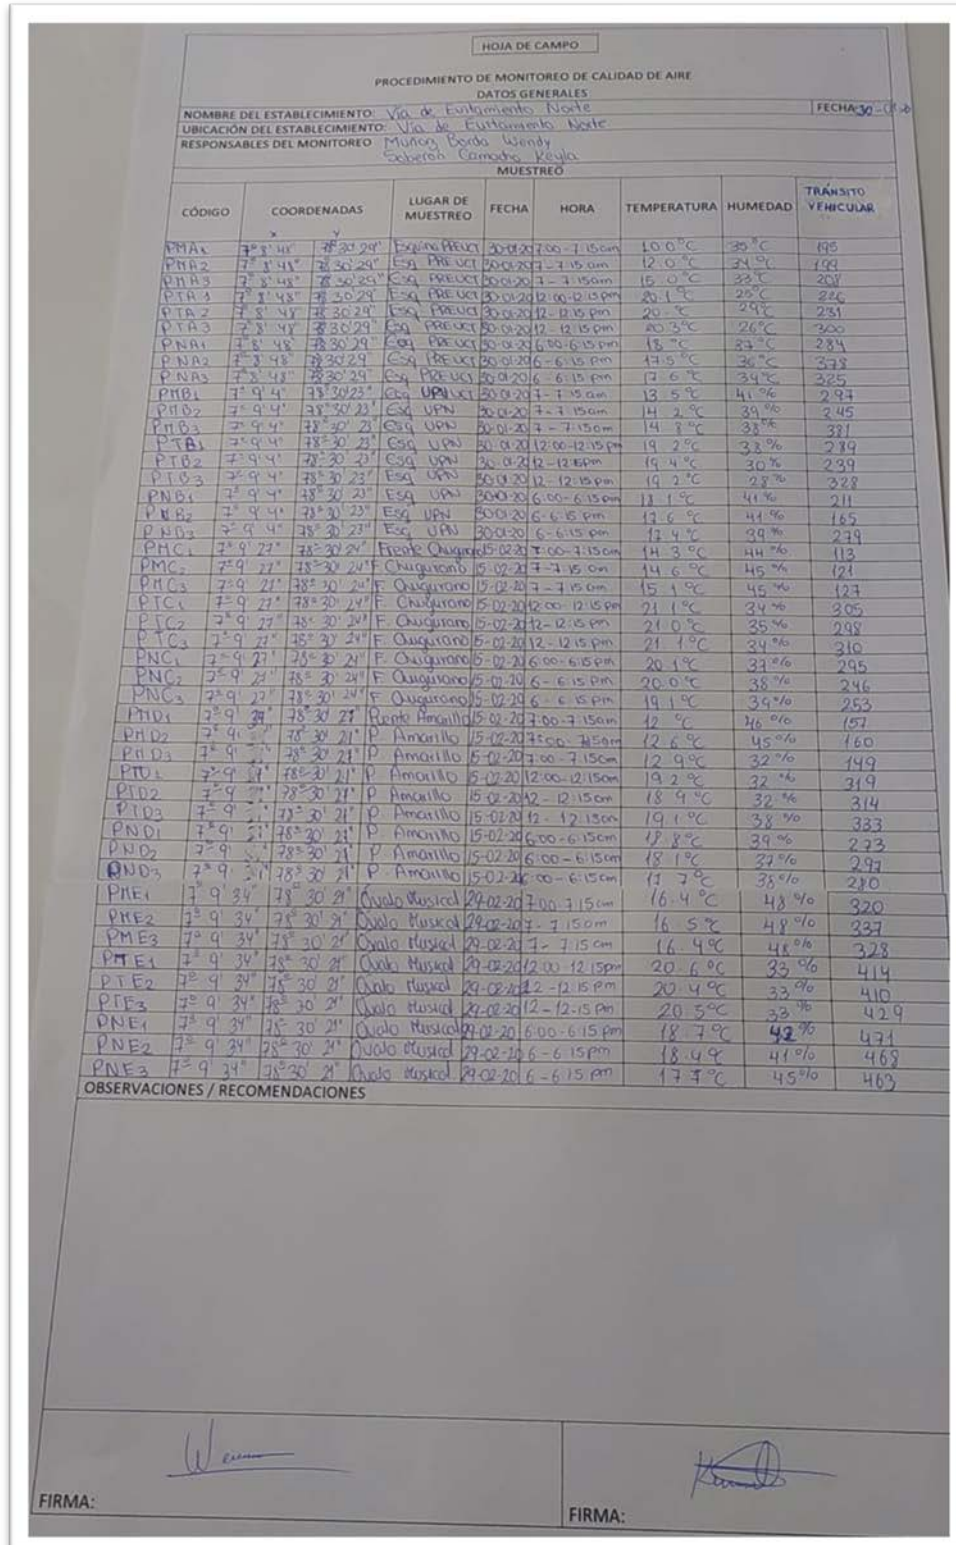 HOJA DE CAMPO
PROCEDIMIENTO DE MONITOREO DE CALIDAD DE AIRE
DATOS GENERALES
NOMBRE DEL ESTABLECIMIENTO: Vía de Evitamiento Norte FECHA: 30-01-20
UBICACIÓN DEL ESTABLECIMIENTO: Vía de Evitamiento Norte
RESPONSABLES DEL MONITOREO Muñoz Borda Wendy
Soberón Camacho Keyla
MUESTREO
CÓDIGO COORDENADAS LUGAR DE MUESTREO FECHA HORA TEMPERATURA HUMEDAD TRÁNSITO VEHICULAR
x y
PMA1 7° 8' 48" 78° 30' 29" Esquina PREUCT 30-01-20 7:00 - 7:15am 10.0°C 35°C 195
PMA2 7° 8' 48" 78° 30' 29" Esq PREUCT 30-01-20 7 - 7:15 am 12.0°C 34°C 199
PMA3 7° 8' 48" 78° 30' 29" Esq PREUCT 30-01-20 7 - 7:15am 15.0°C 33°C 208
PTA1 7° 8' 48" 78° 30' 29" Esq PREUCT 30-01-20 12:00-12:15pm 20.1°C 25°C 226
PTA2 7° 8' 48" 78° 30' 29" Esq PREUCT 30-01-20 12 - 12:15 pm 20. °C 29°C 231
PTA3 7° 8' 48" 78° 30' 29" Esq PREUCT 30-01-20 12 - 12:15 pm 20.3°C 26°C 300
PNA1 7° 8' 48" 78° 30' 29" Esq PREUCT 30-01-20 6:00-6:15pm 18 °C 37°C 284
PNA2 7° 8' 48" 78° 30' 29" Esq PREUCT 30-01-20 6 - 6:15 pm 17.5°C 36°C 378
PNA3 7° 8' 48" 78° 30' 29" Esq PREUCT 30-01-20 6 - 6:15 pm 17.6°C 34°C 325
PMB1 7° 9' 4" 78° 30' 23" Esq UPN 30-01-20 7 - 7:15 am 13.5°C 41% 297
PMB2 7° 9' 4" 78° 30' 23" Esq UPN 30-01-20 7 - 7:15am 14.2°C 39% 245
PMB3 7° 9' 4" 78° 30' 23" Esq UPN 30-01-20 7 - 7:15am 14.8°C 38% 381
PTB1 7° 9' 4" 78° 30' 23" Esq UPN 30-01-20 12:00-12:15pm 19.2°C 33% 289
PTB2 7° 9' 4" 78° 30' 23" Esq UPN 30-01-20 12 - 12:15pm 19.4°C 30% 239
PTB3 7° 9' 4" 78° 30' 23" Esq UPN 30-01-20 12 - 12:15pm 19.2°C 28% 328
PNB1 7° 9' 4" 78° 30' 23" Esq UPN 30-01-20 6:00 - 6:15pm 18.1°C 41% 211
PNB2 7° 9' 4" 78° 30' 23" Esq UPN 30-01-20 6 - 6:15 pm 17.6°C 41% 165
PNB3 7° 9' 4" 78° 30' 23" Esq UPN 30-01-20 6 - 6:15 pm 17.4°C 39% 279
PMC1 7° 9' 27" 78° 30' 24" Frente Chugurano 15-02-20 7:00-7:15am 14.3°C 44% 113
PMC2 7° 9' 27" 78° 30' 24" F. Chugurano 15-02-20 7 - 7:15 am 14.6°C 45% 121
PMC3 7° 9' 27" 78° 30' 24" F. Chugurano 15-02-20 7 - 7:15am 15.1°C 45% 127
PTC1 7° 9' 27" 78° 30' 24" F. Chugurano 15-02-20 12:00 - 12:15pm 21.1°C 34% 305
PTC2 7° 9' 27" 78° 30' 24" F. Chugurano 15-02-20 12 - 12:15 pm 21.0°C 35% 298
PTC3 7° 9' 27" 78° 30' 24" F. Chugurano 15-02-20 12 - 12:15 pm 21.1°C 34% 310
PNC1 7° 9' 27" 78° 30' 24" F. Chugurano 15-02-20 6:00 - 6:15pm 20.1°C 37% 295
PNC2 7° 9' 27" 78° 30' 24" F. Chugurano 15-02-20 6 - 6:15 pm 20.0°C 38% 246
PNC3 7° 9' 27" 78° 30' 24" F. Chugurano 15-02-20 6 - 6:15 pm 19.1°C 39% 253
PMD1 7° 9' 78° 30' 21" Puente Amarillo 15-02-20 7:00 - 7:15am 12 °C 46% 157
PMD2 7° 9' 78° 30' 21" P. Amarillo 15-02-20 7:00 - 7:15am 12.6°C 45% 160
PMD3 7° 9' 78° 30' 21" P. Amarillo 15-02-20 7:00 - 7:15am 12.9°C 32% 149
PTD1 7° 9' 78° 30' 21" P. Amarillo 15-02-20 12:00-12:15am 19.2°C 32% 319
PTD2 7° 9' 78° 30' 21" P. Amarillo 15-02-20 12 - 12:15am 18.9°C 32% 314
PTD3 7° 9' 78° 30' 21" P. Amarillo 15-02-20 12 - 12:15am 19.1°C 38% 333
PND1 7° 9' 78° 30' 21" P. Amarillo 15-02-20 6:00 - 6:15am 18.8°C 39% 273
PND2 7° 9' 78° 30' 21" P. Amarillo 15-02-20 6:00 - 6:15am 18.1°C 37% 297
PND3 7° 9' 78° 30' 21" P. Amarillo 15-02-20 6:00 - 6:15am 17.7°C 38% 280
PME1 7° 9' 34" 78° 30' 21" Ovalo Musical 29-02-20 7:00-7:15am 16.4°C 48% 320
PME2 7° 9' 34" 78° 30' 21" Ovalo Musical 29-02-20 7 - 7:15am 16.5°C 48% 337
PME3 7° 9' 34" 78° 30' 21" Ovalo Musical 29-02-20 7 - 7:15 am 16.4°C 48% 328
PTE1 7° 9' 34" 78° 30' 21" Ovalo Musical 29-02-20 12:00 - 12:15pm 20.6°C 33% 414
PTE2 7° 9' 34" 78° 30' 21" Ovalo Musical 29-02-20 12 - 12:15 pm 20.4°C 33% 410
PTE3 7° 9' 34" 78° 30' 21" Ovalo Musical 29-02-20 12 - 12:15 pm 20.5°C 33% 429
PNE1 7° 9' 34" 78° 30' 21" Ovalo Musical 29-02-20 6:00 - 6:15pm 18.7°C 42% 471
PNE2 7° 9' 34" 78° 30' 21" Ovalo Musical 29-02-20 6 - 6:15pm 18.4°C 41% 468
PNE3 7° 9' 34" 78° 30' 21" Ovalo Musical 29-02-20 6 - 6:15 pm 17.7°C 45% 463
OBSERVACIONES / RECOMENDACIONES
FIRMA: FIRMA: